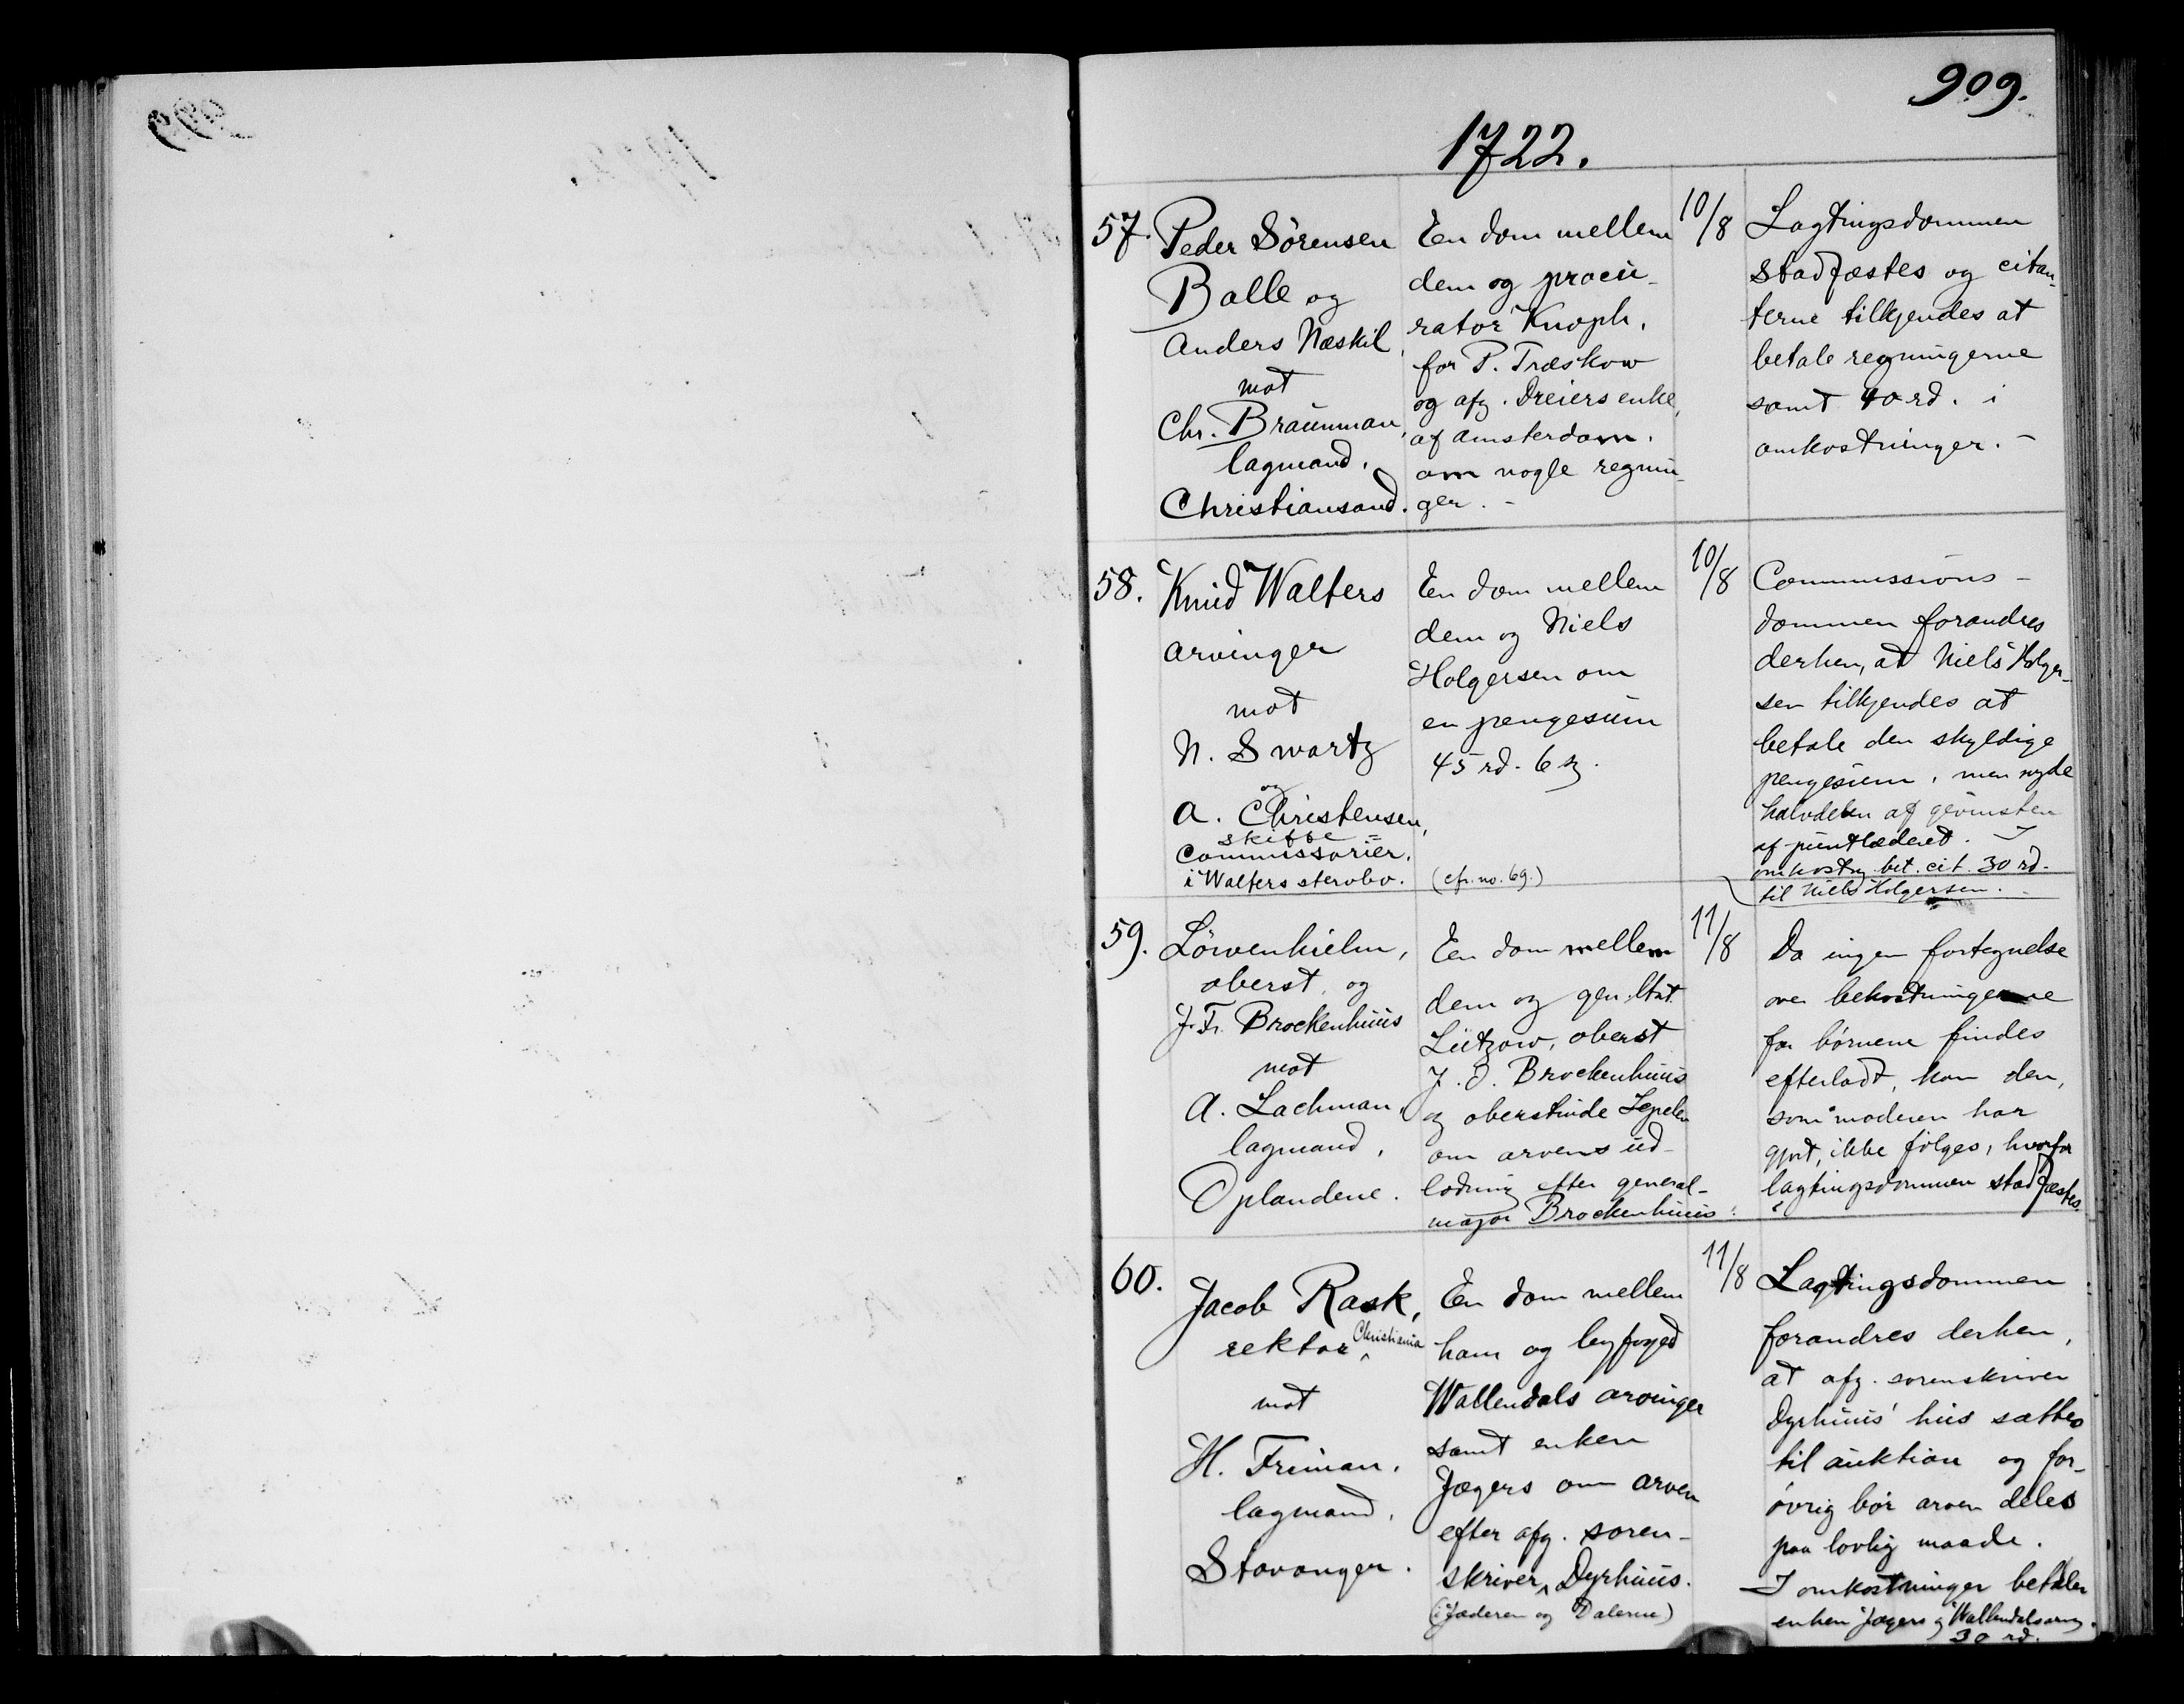 909.
1722.
57.
Peder Sörensen
Balle og
Anders Næskil
mot
Chr. Braünman,
lagmand.
Christiansand.
En dom mellem
dem og procü-
rator Knoph,
for P. Træskow
og afg. Dreiers enke,
af Amsterdam.
om nogle regnin-
ger. -
10/8
Lagtingsdommen
stadfæstes og citan-
terne tilkjendes at
betale regningerne
samt 40 rd. i
omkostninger. -
58.
Knüd Walters
arvinger
mot
N. Swartz
og
A. Christensen,
skifte =
Commissarier.
i Walters stervbo.
En dom mellem
dem og Niels
Holgersen om
en pengesüm
45 rd. 6 s.
(cfr. no. 69.)
10/8
Commissions-
dommen forandres
derhen, at Niels Holger-
sen tilkjendes at
betale den skyldige
pengesüm, men nyde
halvdelen af gevinsten
af püntlæderet. I
omkostn. bet. cit. 30 rd.
til Niels Holgersen.
59.
Löwenhielm,
oberst, og
J. Fr. Brockenhüüs
mot
A. Lachman,
lagmand,
Oplandene.
En dom mellem
dem og gen. ltnt.
Lützow, oberst
J. O. Brockenhüüs
og oberstinde Lepelen
om arvens üd-
lodning efter general-
major Brockenhüüs.
11/8
Da ingen fortegnelse
over bekostningerne
for börnene findes
efterladt, kan den,
som moderen har
gjort, ikke fölges, hvorfor
lagtingsdommen stadfæstes.
60.
Jacob Rask,
rektor Christiania
mot
H. Friman,
lagmand,
Stavanger.
En dom mellem
ham og byfoged
Wallendals arvinger
samt enken
Jægers om arven
efter afg. soren-
skriver Dyrhüüs.
(i Jæderen og Dalerne)
11/8
Lagtingsdommen
forandres derhen,
at afg. sorenskriver
Dyrhüüs' hüs sættes
til aüktion og for-
övrig bör arven deles
paa lovlig maade.
I omkostninger betaler
enken Jægers og Wallendals arv.
30 rd.